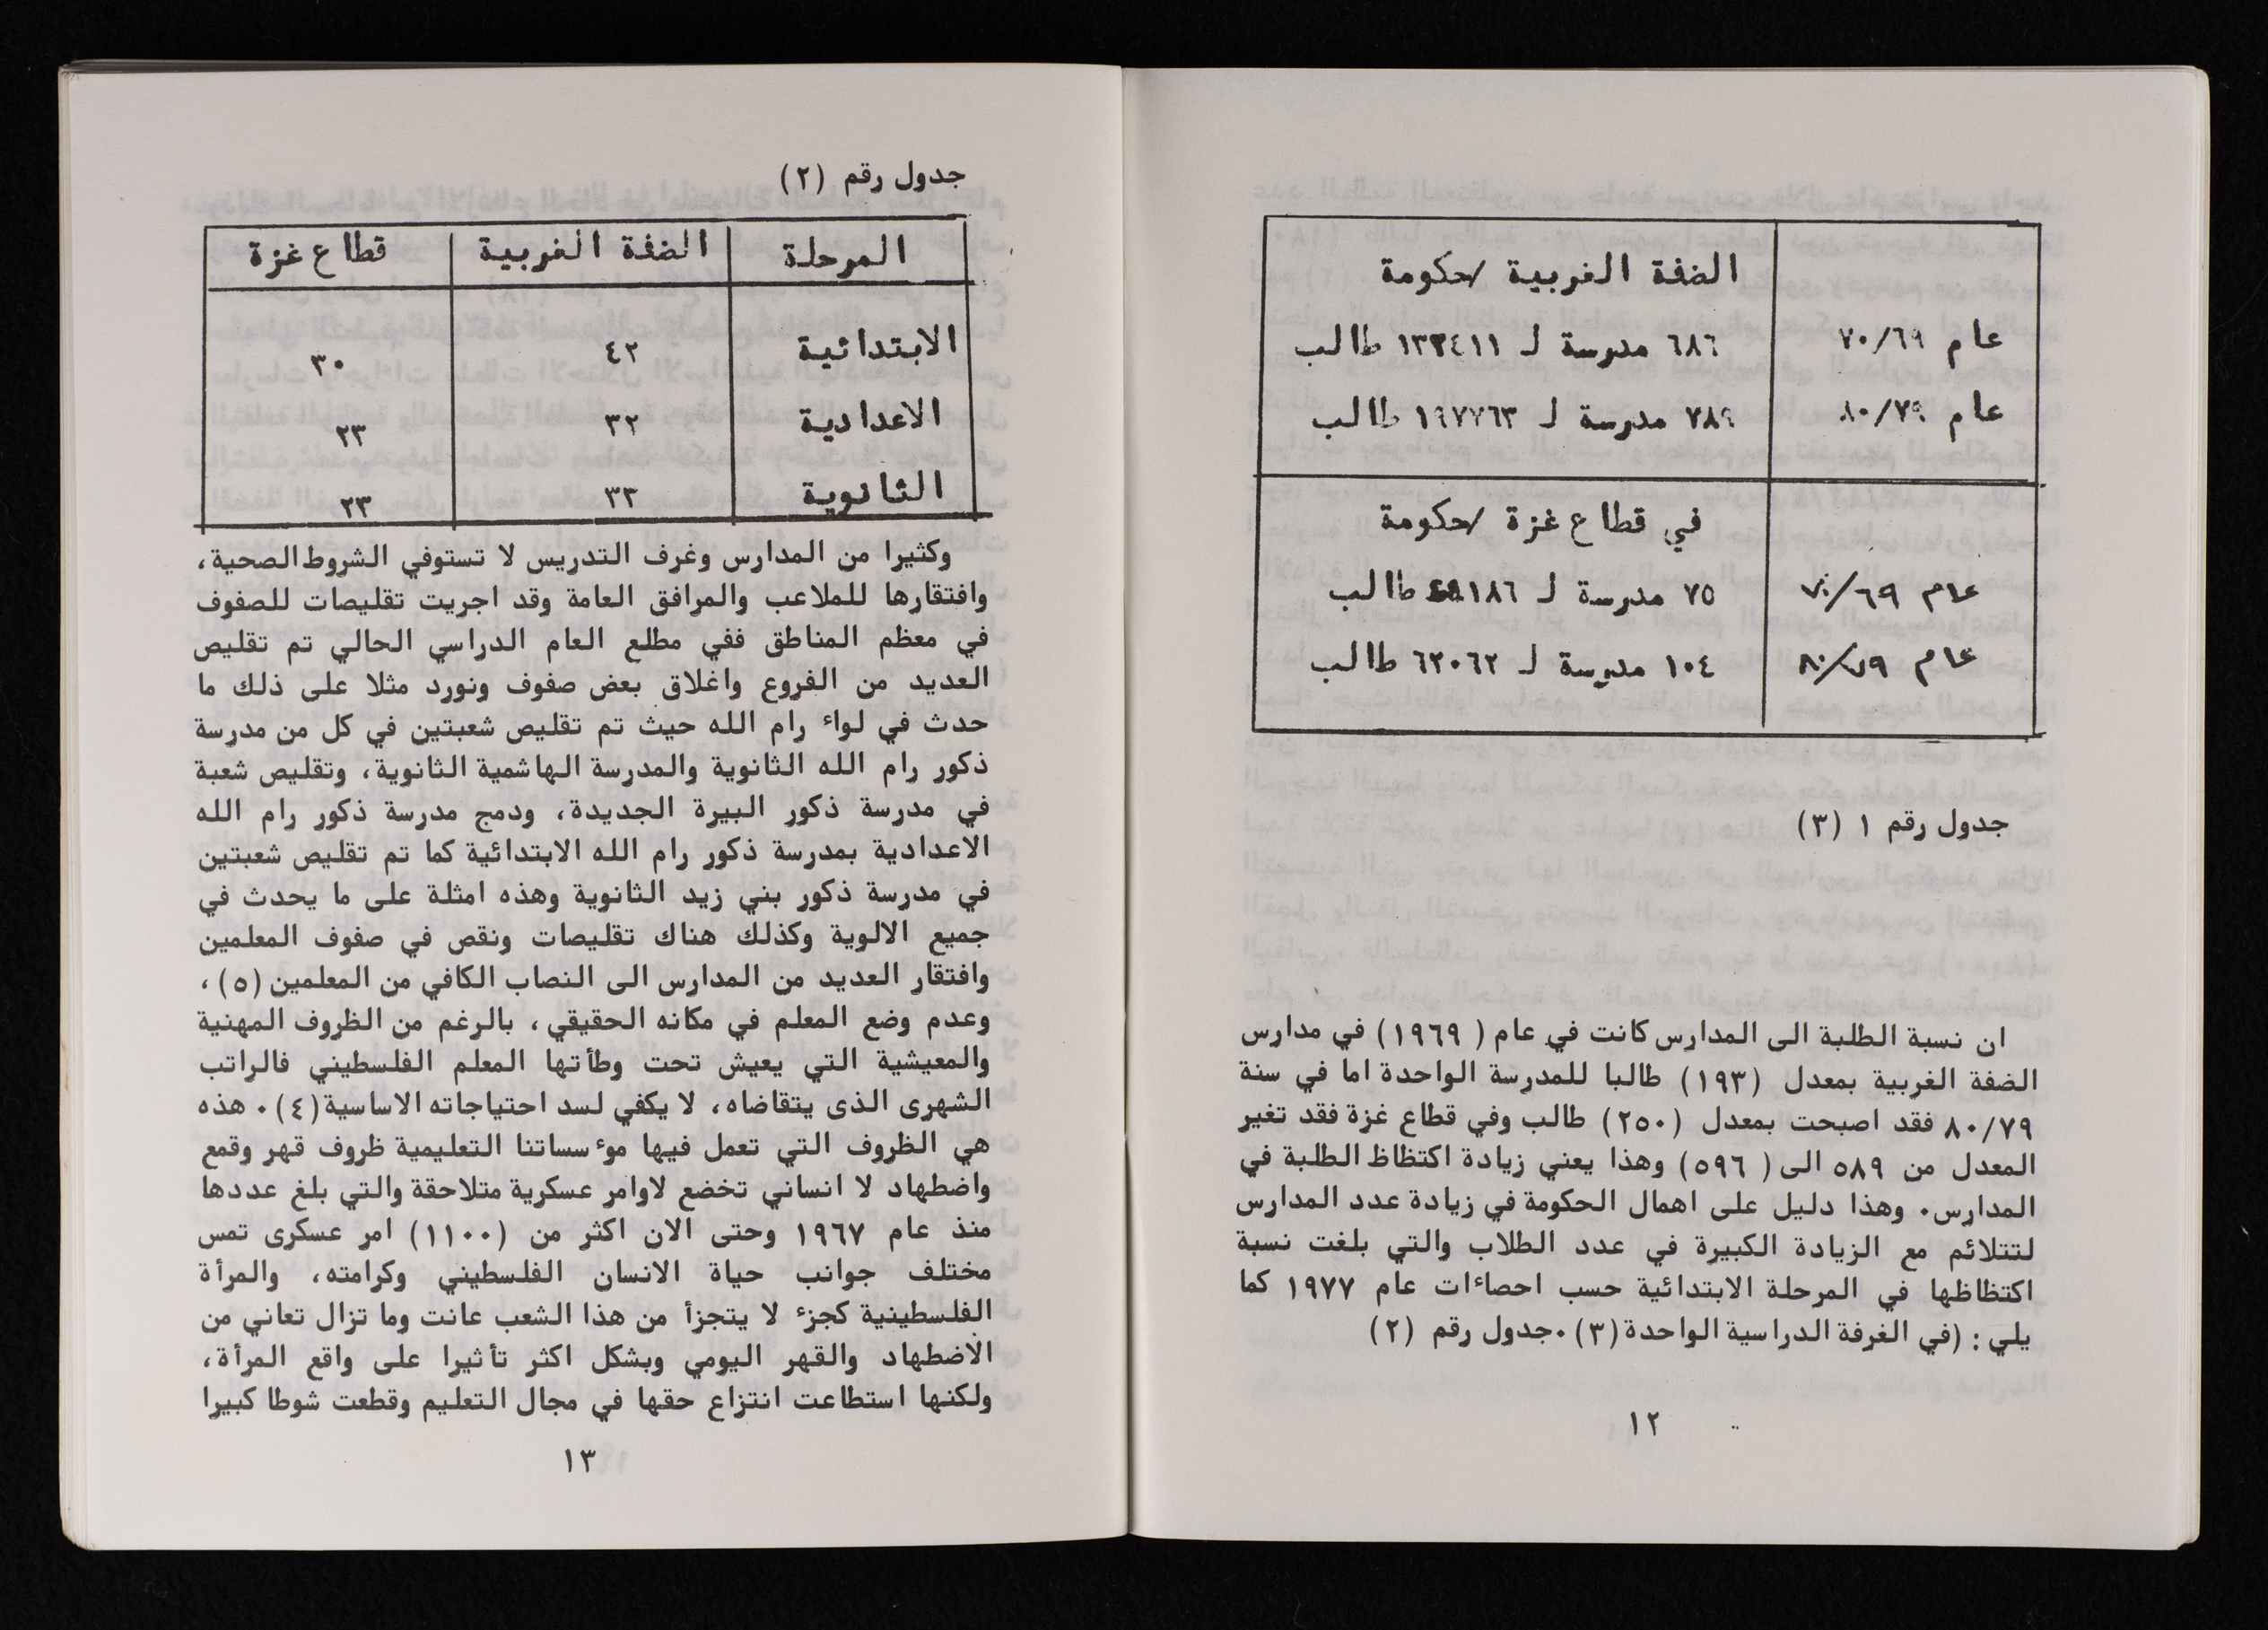 الضفة الغربية /حكومة
عام ٧٠/٦٩ ٦٨٦ مدرسة لـ ١٣٢٤١١ طالب
عام ٨٠/٧٩ ٧٨٩ مدرسة لـ ١٩٧٧٦٣ طالب
في قطاع غزة /حكومة
عام ٧٠/٦٩ ٧٥ مدرسة لـ طالب
عام ٨٠/٧٩ ١٠٤ مدرسة لـ ٦٢٠٦٢ طالب
جدول رقم ١ (٣)
ان نسبة الطلبة الى المدارس كانت في عام (١٩٦٩) في مدارس
الضفة الغربية بمعدل (١٩٣) طالبا للمدرسة الواحدة اما في سنة
٨٠/٧٩ فقد اصبحت بمعدل (٢٥٠) طالب وفي قطاع غزة فقد تغير
المعدل من ٥٨٩ الى (٥٩٦) وهذا يعني زيادة اكتظاظ الطلبة في
المدارس. وهذا دليل على اهمال الحكومة في زيادة عدد المدارس
لتتلائم مع الزيادة الكبيرة في عدد الطلاب والتي بلغت نسبة
اكتظاظها في المرحلة الابتدائية حسب احصاءات عام ١٩٧٧ كما
يلي : (في الغرفة الدراسية الواحدة (٣).جدول رقم (٢)
١٢
جدول رقم (٢)
المرحلة الضفة الغربية قطاع غزة
الابتدائية ٤٢ ٣٠
الاعدادية ٣٢ ٢٣
الثانوية ٣٣ ٢٣
وكثيرا من المدارس وغرف التدريس لا تستوفي الشروط الصحية،
وافتقارها للملاعب والمرافق العامة وقد اجريت تقليصات للصفوف
في معظم المناطق ففي مطلع العام الدراسي الحالي تم تقليص
العديد من الفروع واغلاق بعض صفوف ونورد مثلا على ذلك ما
حدث في لواء رام الله حيث تم تقليص شعبتين في كل من مدرسة
ذكور رام الله الثانوية والمدرسة الهاشمية الثانوية، وتقليص شعبة
في مدرسة ذكور البيرة الجديدة، ودمج مدرسة ذكور رام الله
الاعدادية بمدرسة ذكور رام الله الابتدائية كما تم تقليص شعبتين
في مدرسة ذكور بني زيد الثانوية وهذه امثلة على ما يحدث في
جميع الالوية وكذلك هناك تقليصات ونقص في صفوف المعلمين
وافتقار العديد من المدارس الى النصاب الكافي من المعلمين (٥)،
وعدم وضع المعلم في مكانه الحقيقي، بالرغم من الظروف المهنية
والمعيشية التي يعيش تحت وطأتها المعلم الفلسطيني فالراتب
الشهرى الذى يتقاضاه، لا يكفي لسد احتياجاته الاساسية(٤). هذه
هي الظروف التي تعمل فيها موءسساتنا التعليمية ظروف قهر وقمع
واضطهاد لا انساني تخضع لاوامر عسكرية متلاحقة والتي بلغ عددها
منذ عام ١٩٦٧ وحتى الان اكثر من (١١٠٠) امر عسكرى تمس
مختلف جوانب حياة الانسان الفلسطيني وكرامته، والمرأة
الفلسطينية كجزء لا يتجزأ من هذا الشعب عانت وما تزال تعاني من
الاضطهاد والقهر اليومي وبشكل اكثر تأثيرا على واقع المرأة،
ولكنها استطاعت انتزاع حقها في مجال التعليم وقطعت شوطا كبيرا
١٣